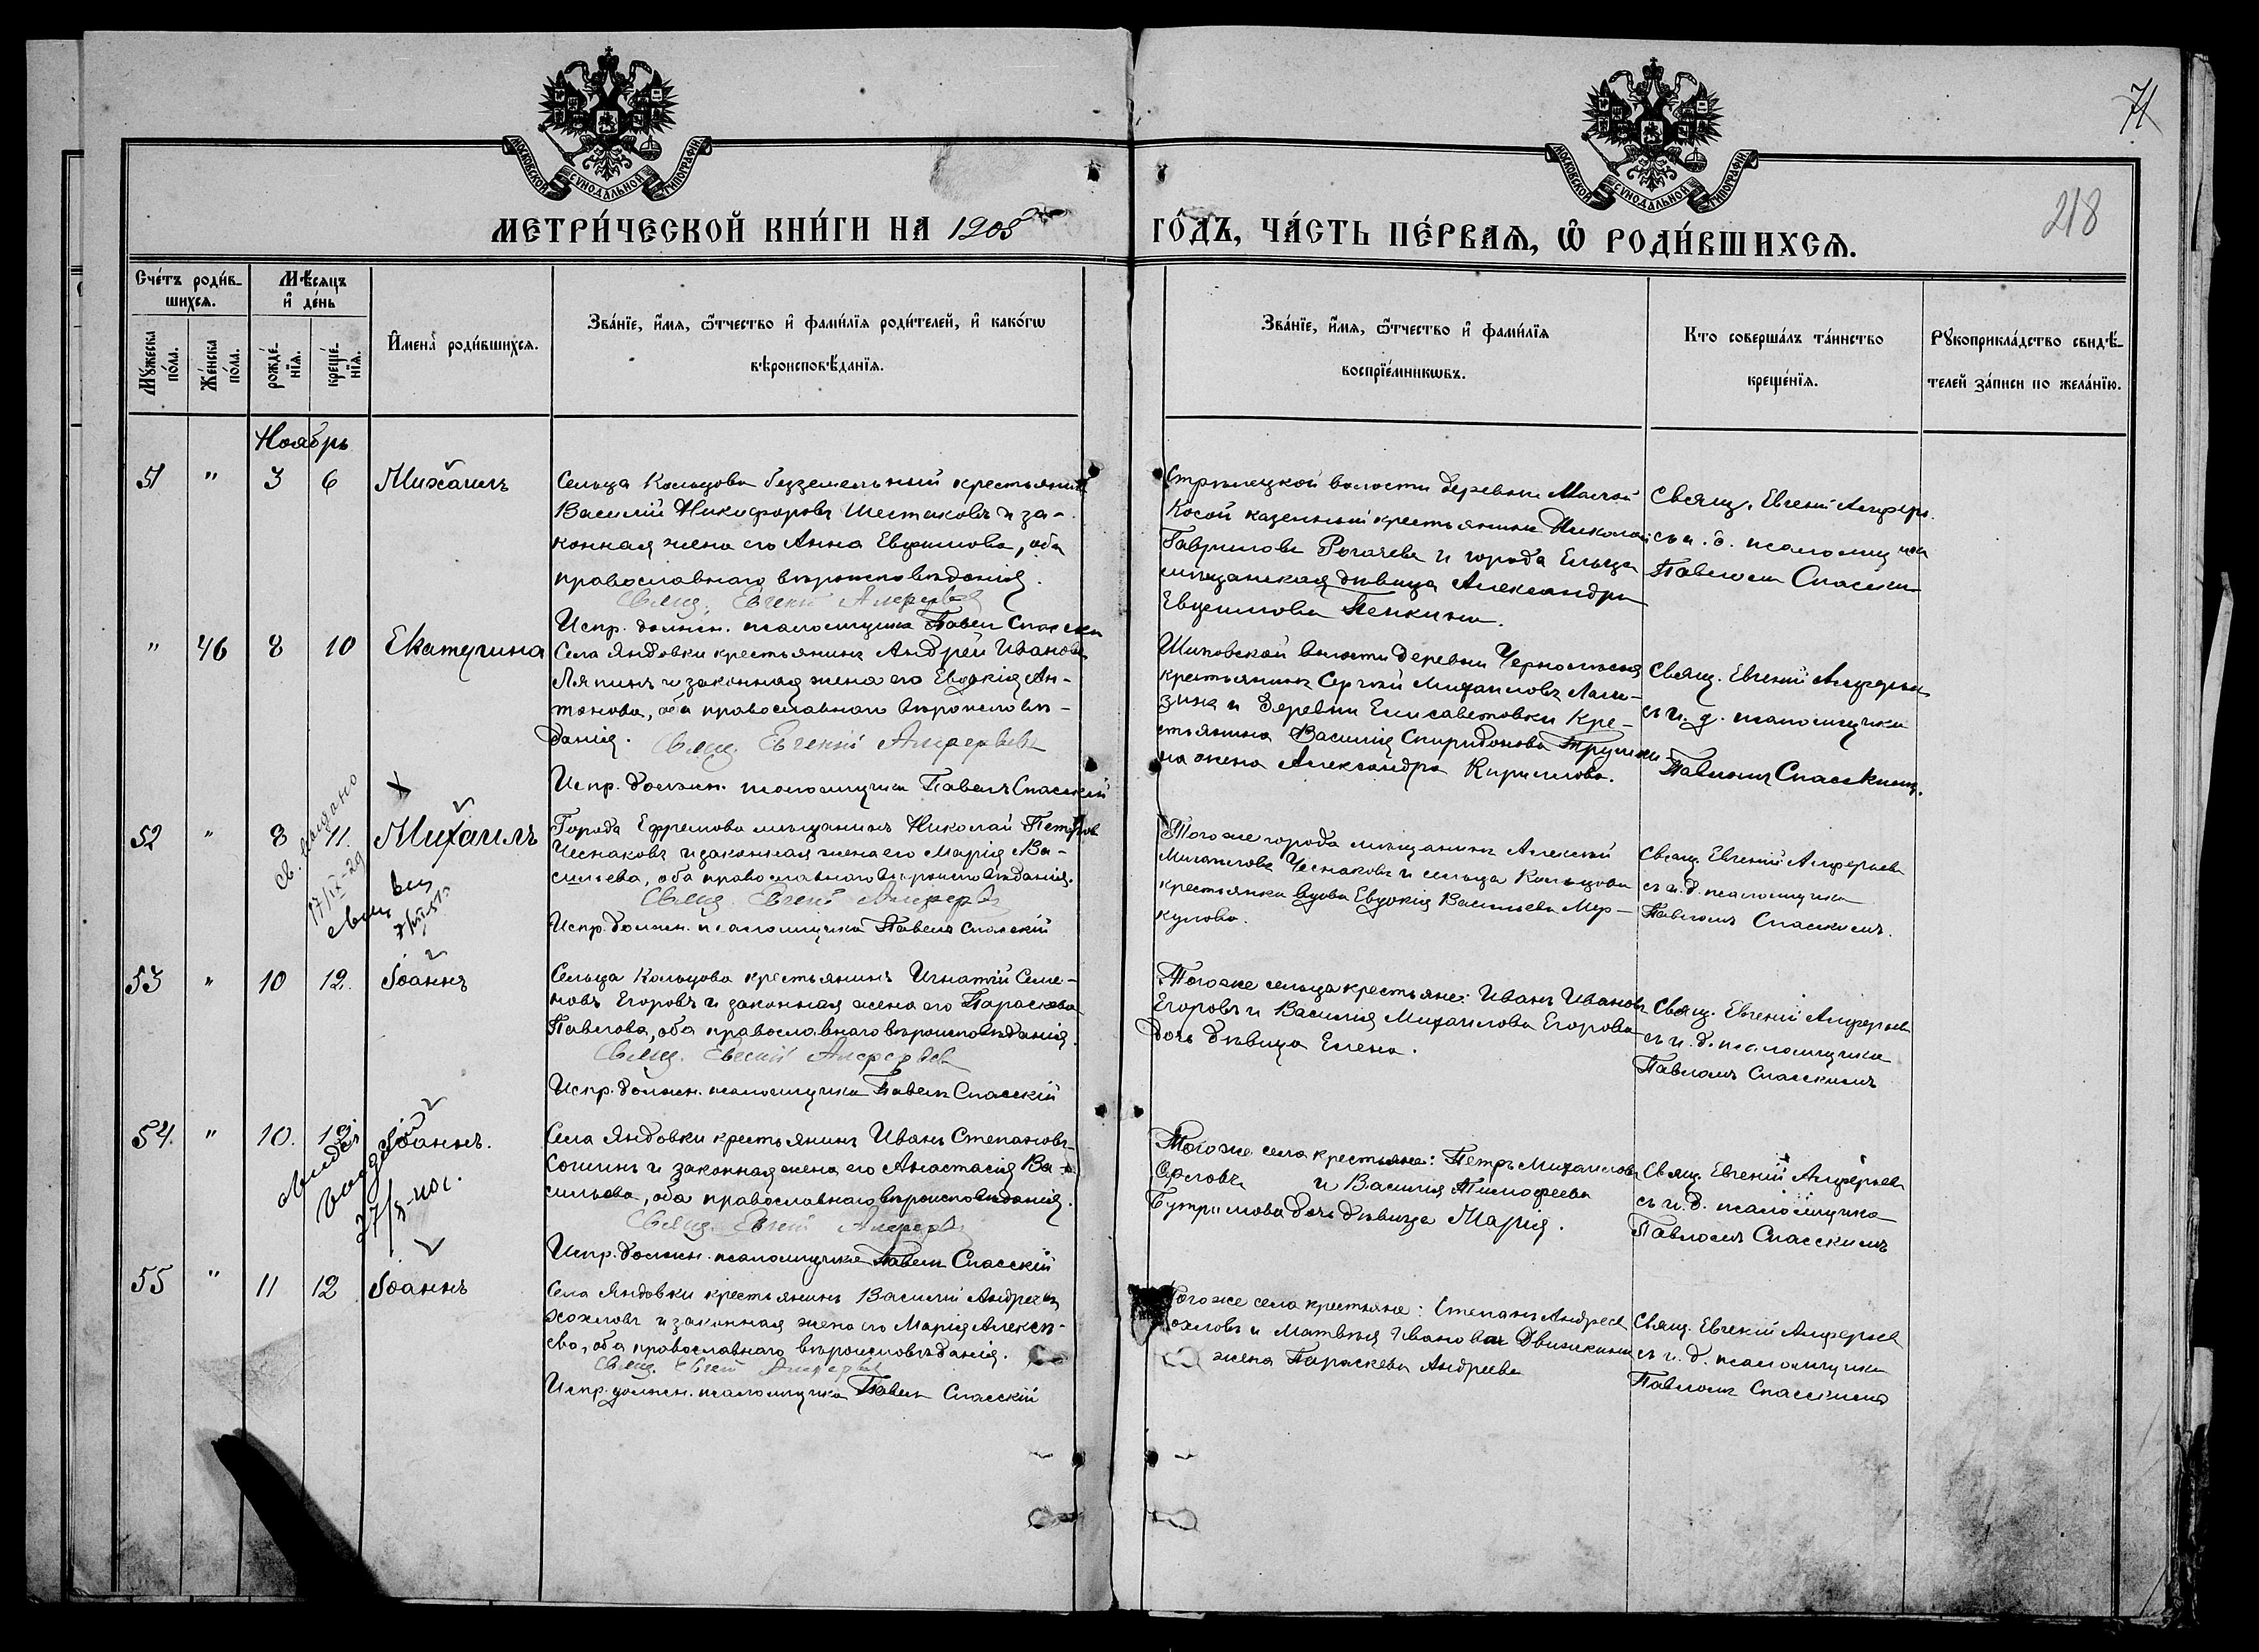 71
218
МОСКОВСКОЙ СУНОДАЛЬНОЙ ТИПОГРАФІИ
МОСКОВСКОЙ СУНОДАЛЬНОЙ ТИПОГРАФІИ
МЕТРИ́ЧЕСКОЙ КНИ́ГИ НА 1908
ГО́ДЪ, ЧА́СТЬ ПЕ́РВАѦ, Ѡ҆ РОДИ́ВШИХСѦ.
Сче́тъ роди́в-
шихсѧ.
Мѣ́сѧцъ
и҆ де́нь
Мꙋ́жеска
по́ла.
Же́нска
по́ла.
рожде́-
нїѧ.
креще́-
нїѧ.
И҆мена̀ роди́вшихсѧ.
Зва́нїе, и҆́мѧ, ѻ҆́тчество и҆ фами́лїѧ роди́телей, и҆ како́гѡ
вѣроисповѣ́данїѧ.
Зва́нїе, и҆́мѧ, ѻ҆́тчество и҆ фами́лїѧ
воспрїе́мникѡвъ.
Кто соверша́лъ та́инство
креще́нїѧ.
Рꙋкоприкла́дство свидѣ́-
телей за́писи по жела́нїю.
Ноябрь
51 " 3 6 Михаилъ
Сельца Кольцова безземельный крестьянинъ
Василій Никифоровъ Шестаковъ и за-
конная жена его Анна Евфимова, оба
православнаго вѣроисповѣданія.
Свящ. Евгеній Алферьевъ
Испр. должн. псаломщика Павелъ Спасскій
Стрѣлецкой волости деревни Малой
Косой казенный крестьянинъ Николай
Гавриловъ Рогачевъ и города Ельца
мѣщанская дѣвица Александра
Евфимова Пенкина.
Свящ. Евгеній Алферьевъ
съ и. д. псаломщика
Павломъ Спасскимъ
" 46 8 10 Екатерина
Села Яндовки крестьянинъ Андрей Ивановъ
Ляпинъ и законная жена его Евдокія Ан-
тонова, оба православнаго вѣроисповѣ-
данія. Свящ. Евгеній Алферьевъ
Испр. должн. псаломщика Павелъ Спасскій
Шиповской волости деревни
крестьянинъ Сергѣй Михаиловъ
и деревни Елисаветовки кре-
стьянина Василія Спиридонова
на жена Александра Кириллова.
Свящ. Евгеній Алферьевъ
съ и. д. псаломщика
Павломъ Спасскимъ.
52 " 8 11. Михаилъ
св. выдано
17/IX-29
Города Ефремова мѣщанинъ Николай Петровъ
Чеснаковъ и законная жена его Марія Ва-
сильева, оба православнаго вѣроисповѣданія.
Свящ. Евгеній Алферьевъ
Испр. должн. псаломщика Павелъ Спасскій
Того же города мѣщанинъ Алексѣй
Михаиловъ Чеснаковъ и сельца Кольцова
крестьянка вдова Евдокія Васильева Мер-
кулова.
Свящ. Евгеній Алферьевъ
съ и. д. псаломщика
Павломъ Спасскимъ.
53 " 10 12. Іоаннъ
Сельца Кольцова крестьянинъ Игнатій Семе-
новъ Егоровъ и законная жена его Параскева
Павлова, оба православнаго вѣроисповѣданія.
Свящ. Евгеній Алферьевъ
Испр. должн. псаломщика Павелъ Спасскій
Того же сельца крестьяне: Иванъ Ивановъ
Егоровъ и Василія Михаилова Егорова
дочь дѣвица Елена.
Свящ. Евгеній Алферьевъ
съ и. д. псаломщика
Павломъ Спасскимъ
54. " 10. 12 Іоаннъ.
Села Яндовки крестьянинъ Иванъ Степановъ
Сошинъ и законная жена его Анастасія Ва-
сильева, оба православнаго вѣроисповѣданія.
Свящ. Евгеній Алферьевъ
Испр. должн. псаломщика Павелъ Спасскій
Того же села крестьяне: Петръ Михаиловъ
Орловъ и Василія Тимофеева
Бутримова дочь дѣвица Марія.
Свящ. Евгеній Алферьевъ
съ и. д. псаломщика
Павломъ Спасскимъ
55 " 11 12 Іоаннъ
Села Яндовки крестьянинъ Василій Андреевъ
Хохловъ и законная жена его Марія Алексѣ-
ева, оба православнаго вѣроисповѣданія.
Свящ. Евгеній Алферьевъ
Испр. должн. псаломщика Павелъ Спасскій
Того же села крестьяне: Степанъ Андреевъ
Хохловъ и Матвѣя Иванова
жена Параскева Андреева
Свящ. Евгеній Алферьевъ
съ и. д. псаломщика
Павломъ Спасскимъ